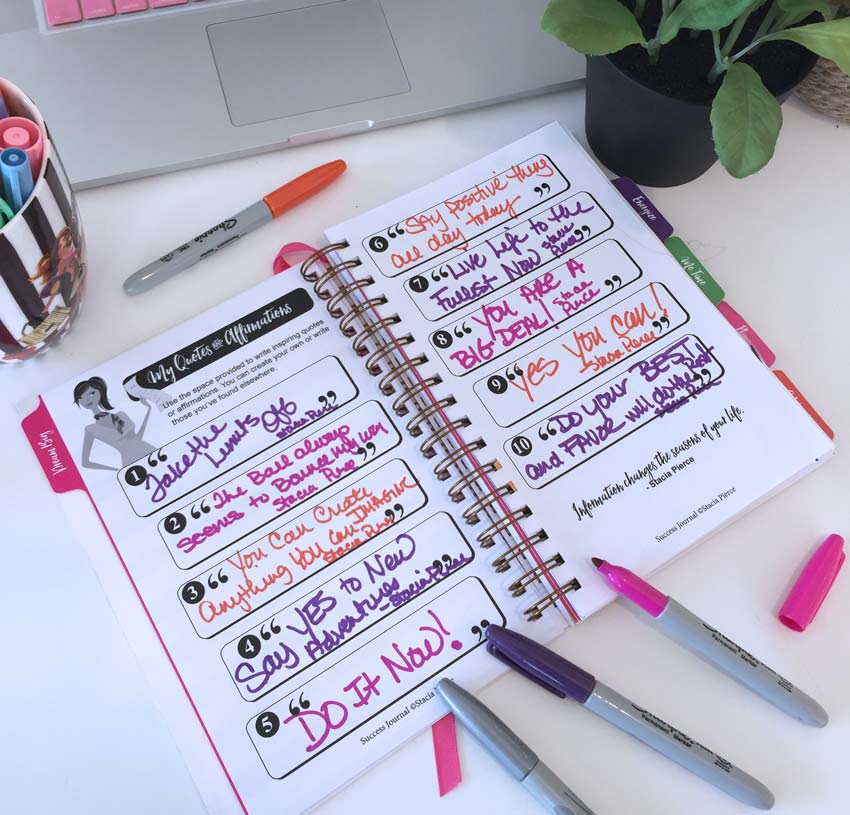 My Quotes and Affirmations
Use the space provided to write inspiring quotes
or affirmations. You can create your own or write
those you've found elsewhere.
1 “ Take the
Limits Off
Stacia Pierce ”
2 “ The Ball always
seems to Bounce My way
Stacia Pierce ”
3 “ You Can Create
anything YOU Can IMAGINE
Stacia Pierce ”
4 “ Say YES to New
Adventures
- Stacia Pierce ”
5 “ DO It NOW! ”
Success Journal ©Stacia Pierce
6 “ SAY Positive thing
all day today ”
7 “ Live Life to the
Fullest Now Stacia
Pierce ”
8 “ YOU ARE A
BIG DEAL! Stacia
Pierce ”
9 “ Yes You Can!
Stacia Pierce ”
10 “ DO YOUR BEST
and FAVOR will do the Rest
Stacia Pierce ”
Information changes the seasons of your life.
- Stacia Pierce
Success Journal ©Stacia Pierce
Energize
Me Time
Dream Big
Sharpie
Permanent Marker
Permanent Marker